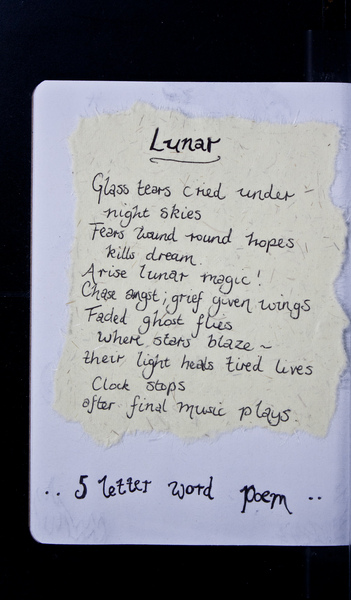 Lunar
Glass tears cried under
night skies
Fears wound round hopes
kills dream.
Arise lunar magic!
Chase angst; grief given wings
Faded ghost flies
where stars blaze ~
their light heals tired lives
Clock stops
after final music plays.
.. 5 letter word poem ..